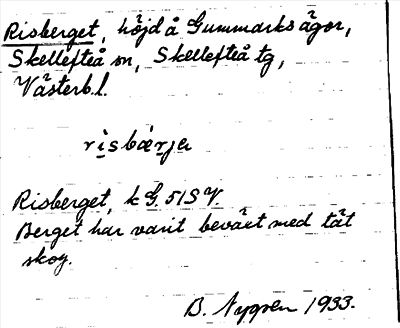 Risberget, höjd å Gummarks ägor,
Skellefteå sn, Skellefteå tg,
Västerb.l.
risbærje
Risberget, k G. 51 S V.
Berget har varit beväxt med tät
skog.
B. Nygren 1933.